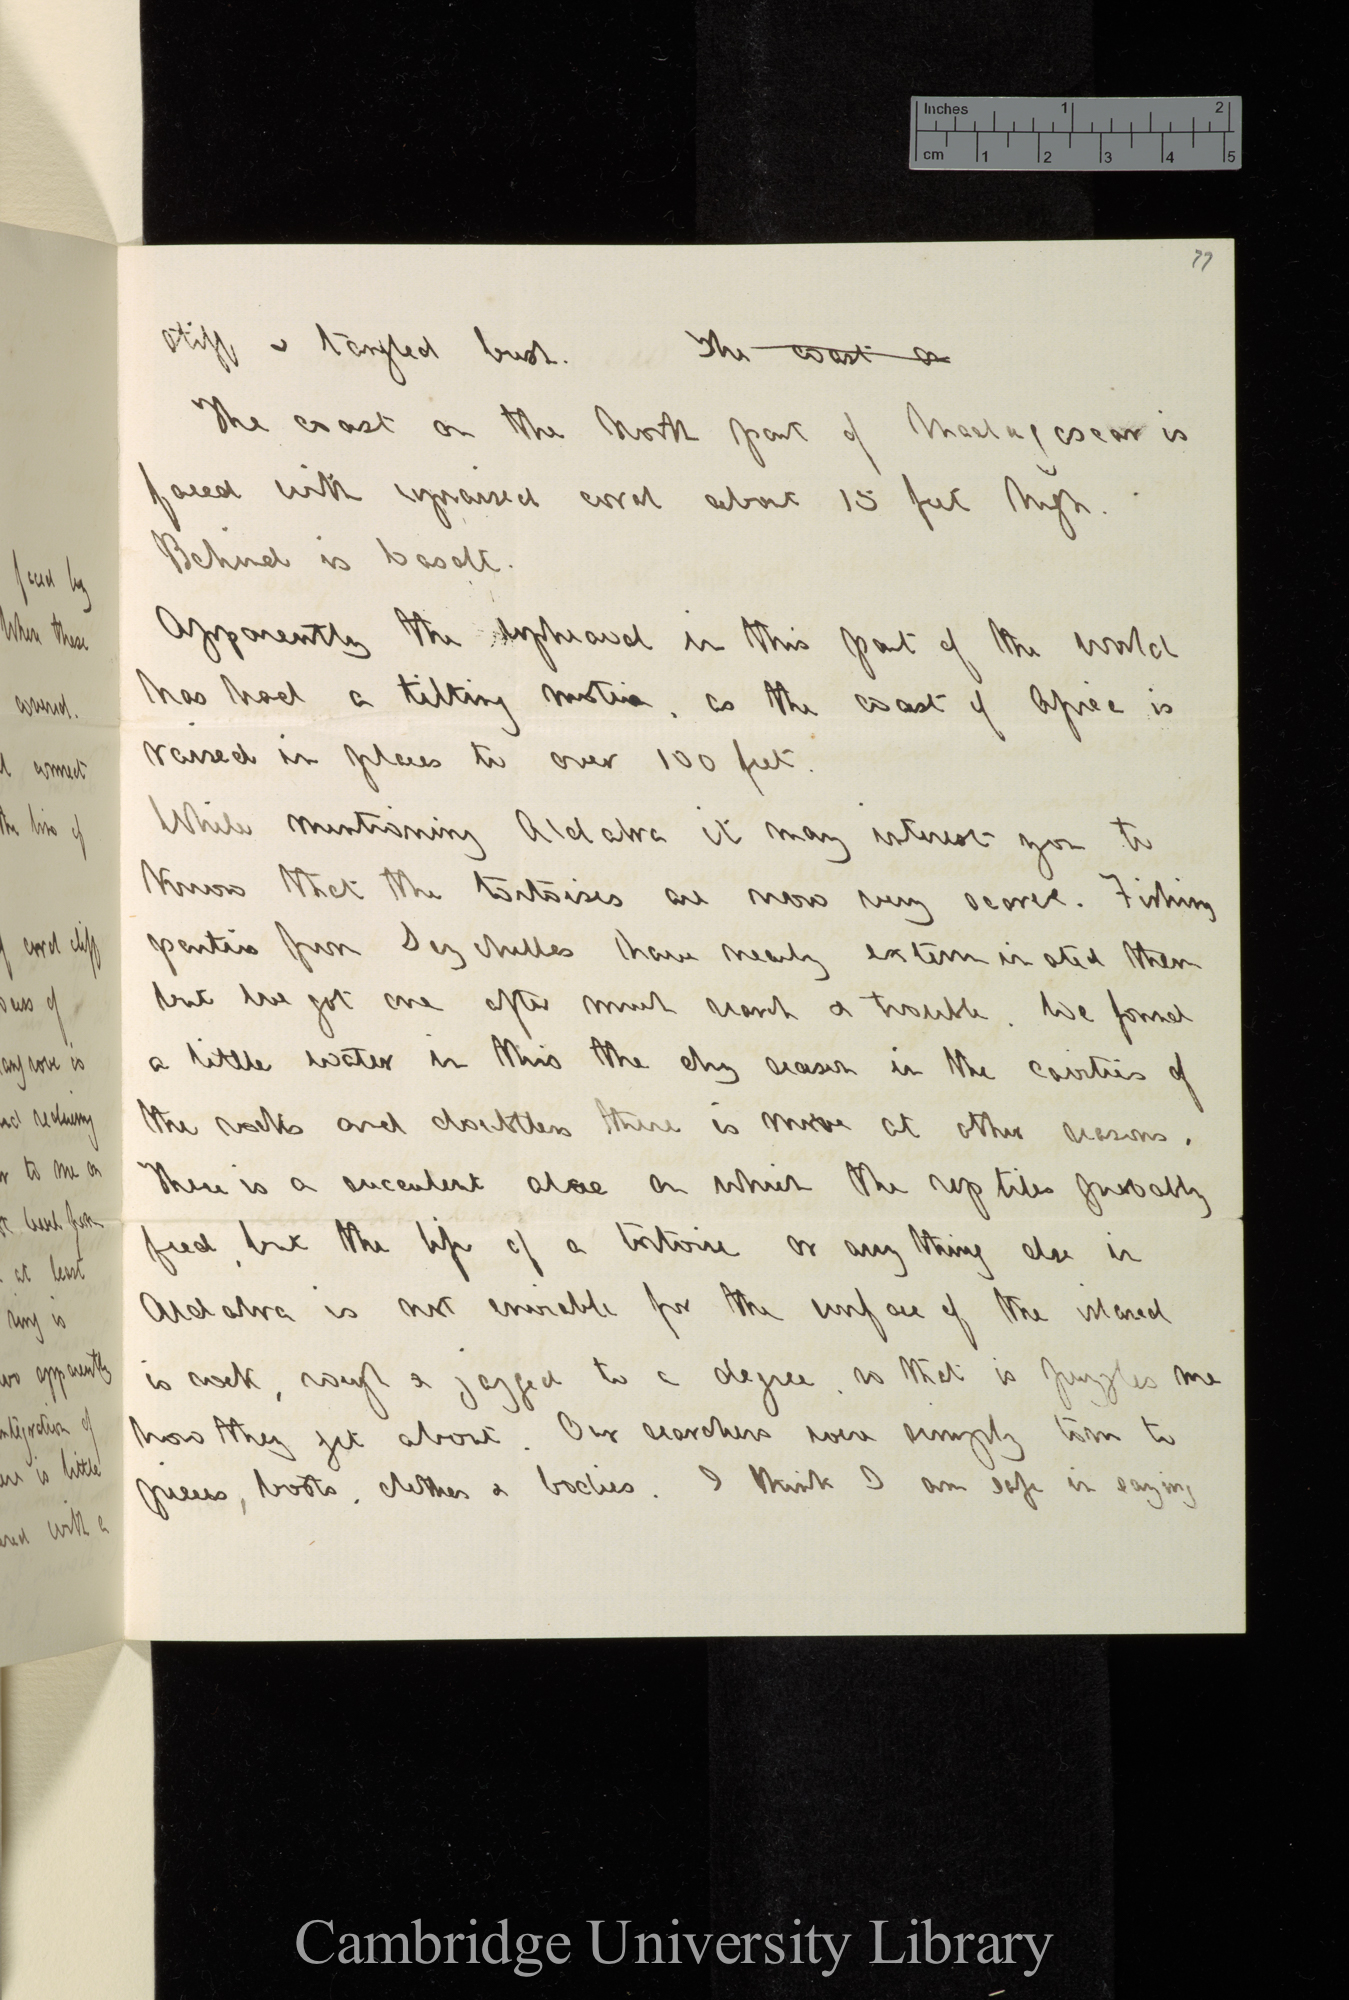 Inches 1 2
cm 1 2 3 4 5
77
stiff & tangled bush. The coast on
The coast on the North part of Madagascar is
faced with upraised coral about 15 feet high.
Behind is basalt.
Apparently the upheaval in this part of the world
has had a tilting motion, as the coast of Africa is
raised in places to over 100 feet.
While mentioning Aldabra it may interest you to
know that the tortoises are now very scarce. Fishing
parties from Seychelles have nearly exterminated them
but we got one after much search & trouble. We found
a little water in this the dry season in the cavities of
the rocks and doubtless there is more at other seasons.
There is a succulent aloe on which the reptiles probably
feed, but the life of a tortoise or any thing else in
Aldabra is not enviable for the surface of the island
is rock, rough & jagged to a degree, so that is puzzles me
how they get about. Our searchers were simply torn to
pieces, boots, clothes & bodies. I think I am safe in saying
faced by
When these
covered.
connect
the line of
of coral cliff
of
mangrove is
reducing
to me on
level from
at least
ring is
two apparently
disintegration of
is little
covered with a
Cambridge University Library